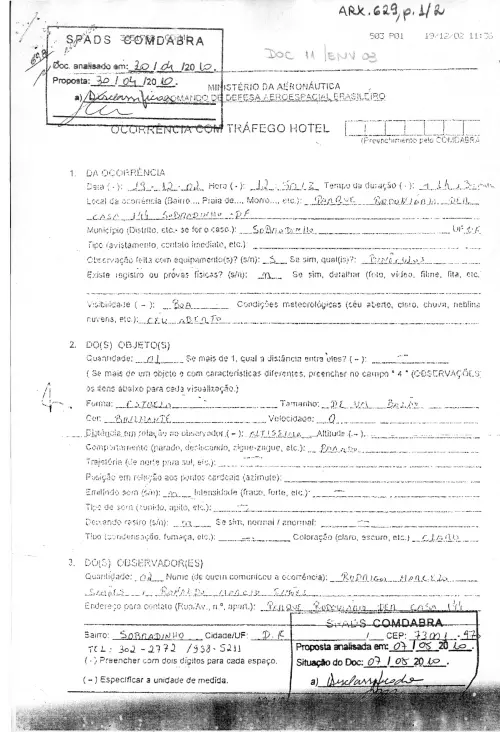 ARX.629, p.1/2
503 P01 19/12/02 11:56
SPADS COMDABRA
DOC 11/ENV 03
Doc. analisado em: 30/04/2010.
Proposta: 30/04/2010.
a) Desclassificado
MINISTÉRIO DA AERONÁUTICA
COMANDO DE DEFESA AEROESPACIAL BRASILEIRO
OCORRÊNCIA COM TRÁFEGO HOTEL
(Preenchimento pelo COMDABRA
1. DA OCORRÊNCIA
Data (-): 19-12-02 Hora (-): Tempo de duração (-):
Local da ocorrência (Bairro..., Praia de..., Morro..., etc.): PARQUE RODOVIARIO DER
CASA SOBRADINHO-DF
Município (Distrito, etc.- se for o caso): SOBRADINHO UF DF
Tipo (avistamento, contato imediato, etc.)
Observação feita com equipamento(s)? (s/n): S Se sim, qual(is)?:
Existe registro ou provas físicas? (s/n): n Se sim, detalhar (foto, vídeo, filme, fita, etc.
Visibilidade (–): BOA Condições meteorológicas (céu aberto, claro, chuva, neblina
nuvens, etc.): CEU ABERTO
2. DO(S) OBJETO(S)
Quantidade: 01 Se mais de 1, qual a distância entre eles? (–): —
(Se mais de um objeto e com características diferentes, preencher no campo "4" (OBSERVAÇÕES)
os itens abaixo para cada visualização.)
Forma: ESTRELA Tamanho: DE UM BALÃO
Cor: BRILHANTE Velocidade: 0
Distância em relação ao observador (–): ALTISSIMA Altitude (–).
Comportamento (parado, deslocando, zigue-zague, etc.): PARADO
Trajetória (de norte para sul, etc.): —
Posição em relação aos pontos cardeais (azimute):
Emitindo som (s/n): n Intensidade (fraco, forte, etc.): —
Tipo de som (zunido, apito, etc.): —
Deixando rastro (s/n): n Se sim, normal / anormal: —
Tipo (condensação, fumaça, etc.): — Coloração (claro, escuro, etc.) CLARO
3. DO(S) OBSERVADOR(ES)
Quantidade: 02 Nome (de quem comunicou a ocorrência): RODRIGO MARCELO
SIMÕES E RONALDO MARCIO SIMÕES
Endereço para contato (Rua/Av., n.º, apart.): PARQUE RODOVIARIO DER CASA
SPADS COMDABRA
Bairro: SOBRADINHO Cidade/UF: D.F / CEP:
TEL: 302-2772 /958-5211
Proposta analisada em: 07/05/2010.
(-) Preencher com dois dígitos para cada espaço.
Situação do Doc: 07/05/2010.
(–) Especificar a unidade de medida.
a) Desclassificado